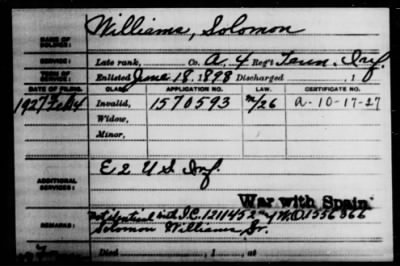 NAME OF SOLDIER: Williams, Solomon
SERVICE: Late rank, Co. A, 4 Reg't Tenn. Inf.
TERM OF SERVICE: Enlisted June 18, 1898 Discharged , 1
DATE OF FILING. CLASS. APPLICATION NO. LAW. CERTIFICATE NO.
1927 Feb 4 Invalid, 1570593 m/26 a-10-17-27
Widow,
Minor,
ADDITIONAL SERVICES: E 2 U S Inf.
War with Spain
REMARKS: Not identical with I.C. 1211452 W.O. 1556366
Solomon Williams, Sr.
Died , 1 , at